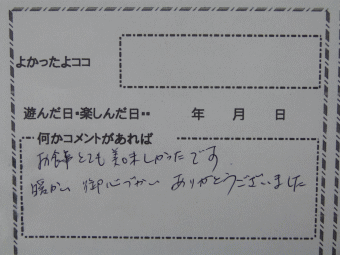 よかったよココ
遊んだ日・楽しんだ日・・ 年 月 日
何かコメントがあれば
お食事とても美味しかったです
暖かい御心づかいありがとうございました